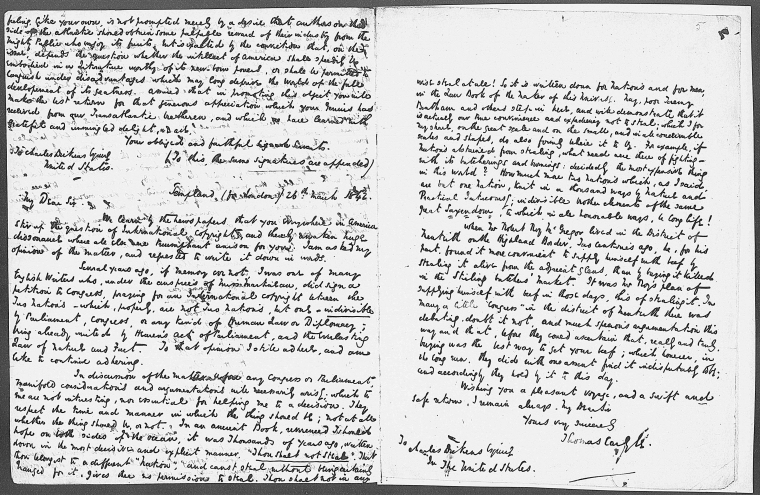 feeling, like your own, is not prompted merely by a desire that authors on this
side of the atlantic should obtain some palpable reward of their industry from the
mighty Public who enjoy its fruits, but is exalted by the conviction that, on the
issue, depends the question whether the intellect of America shall speedily be
embodied in a literature worthy of its newborn powers, or shall be permitted to
languish under disadvantages which may long deprive the world of the full
development of its greatness. assured that in promoting this object you will
make the best return for that generous appreciation which your Genius has
received from our Transatlantic brethren, and which we have learned with
grateful and unmingled delight, we are,
Your obliged and faithful Servants.
To Charles Dickens Esquire
United States.
(To this, the same signatures are appended)
Templand, (for London) 26th March 1842.
My Dear Sir
We learn by the newspapers that you everywhere in America
stir up the question of International copyright, and thereby awaken huge
dissonance where all else were triumphant unison for you. I am asked my
opinion of the matter, and requested to write it down in words.
Several years ago, if memory err not, I was one of many
English Writers who, under the auspices of Miss Martineau, did sign a
petition to Congress, praying for an International copyright between the
Two Nations – which, properly, are not Two Nations, but one – indivisible
by Parliament, Congress, or any kind of Human Law or Diplomacy;
being already united by Heaven's Act of Parliament, and the Everlasting
Law of Nature and Fact. To that opinion I still adhere, and am
like to continue adhering.
In discussion of the matter before any Congress or Parliament,
manifold considerations and argumentations will necessarily arise, which to
me are not interesting, nor essential for helping me to a decision. They
respect the time and manner in which the thing should be; not at all
whether the thing should be, or not. In an ancient Book, reverenced I should
hope on both sides of the ocean, it was Thousands of years ago, written
down in the most decisive and explicit manner, "Thou shalt not Steal". That
thou belongest to a different "Nation", and canst steal without being certainly
hanged for it, gives thee no permission to steal. Thou shalt not in any
wise steal at all! So it is written down for Nations and for men,
in the Law Book of the Maker of this Universe. Nay, poor Jeremy
Bentham and others step in here, and will demonstrate that it
is actually our true convenience and expediency not to steal; which I for
my share, on the great scale and on the small, and in all conceivable
scales and shapes, do also firmly believe it to be. For example, if
Nations abstained from stealing, what need were there of fighting –
with its butcherings and burnings; decidedly the most expensive thing
in this world? How much more two nations which, as I said,
are but one nation, knit in a thousand ways by Nature and
Practical Intercourse; indivisible brother elements of the same
great Saxondom, to which in all honorable ways, be long life!
When Mr Robert Roy McGregor lived in the District of
Menteith on the Highland Border, two centuries ago, he, for his
part found it more convenient to supply himself with beef by
stealing it alive from the adjacent glens, than by buying it killed
in the Stirling butchers' market. It was Mr Roy's plan of
supplying himself with beef in those days, this of stealing it. In
many a little "Congress" in the district of Menteith there was
debating, doubt it not, and much specious argumentation this
way and that, before they could ascertain that, really and truly,
buying was the best way to get your beef; which however, in
the long run, they did with one assent find it indisputably to be;
and accordingly they hold by it to this day.
Wishing you a pleasant voyage, and a swift and
safe return, I remain always, my Dear Sir
Yours very sincerely
Thomas Carlyle
To Charles Dickens Esquire
In The United States.